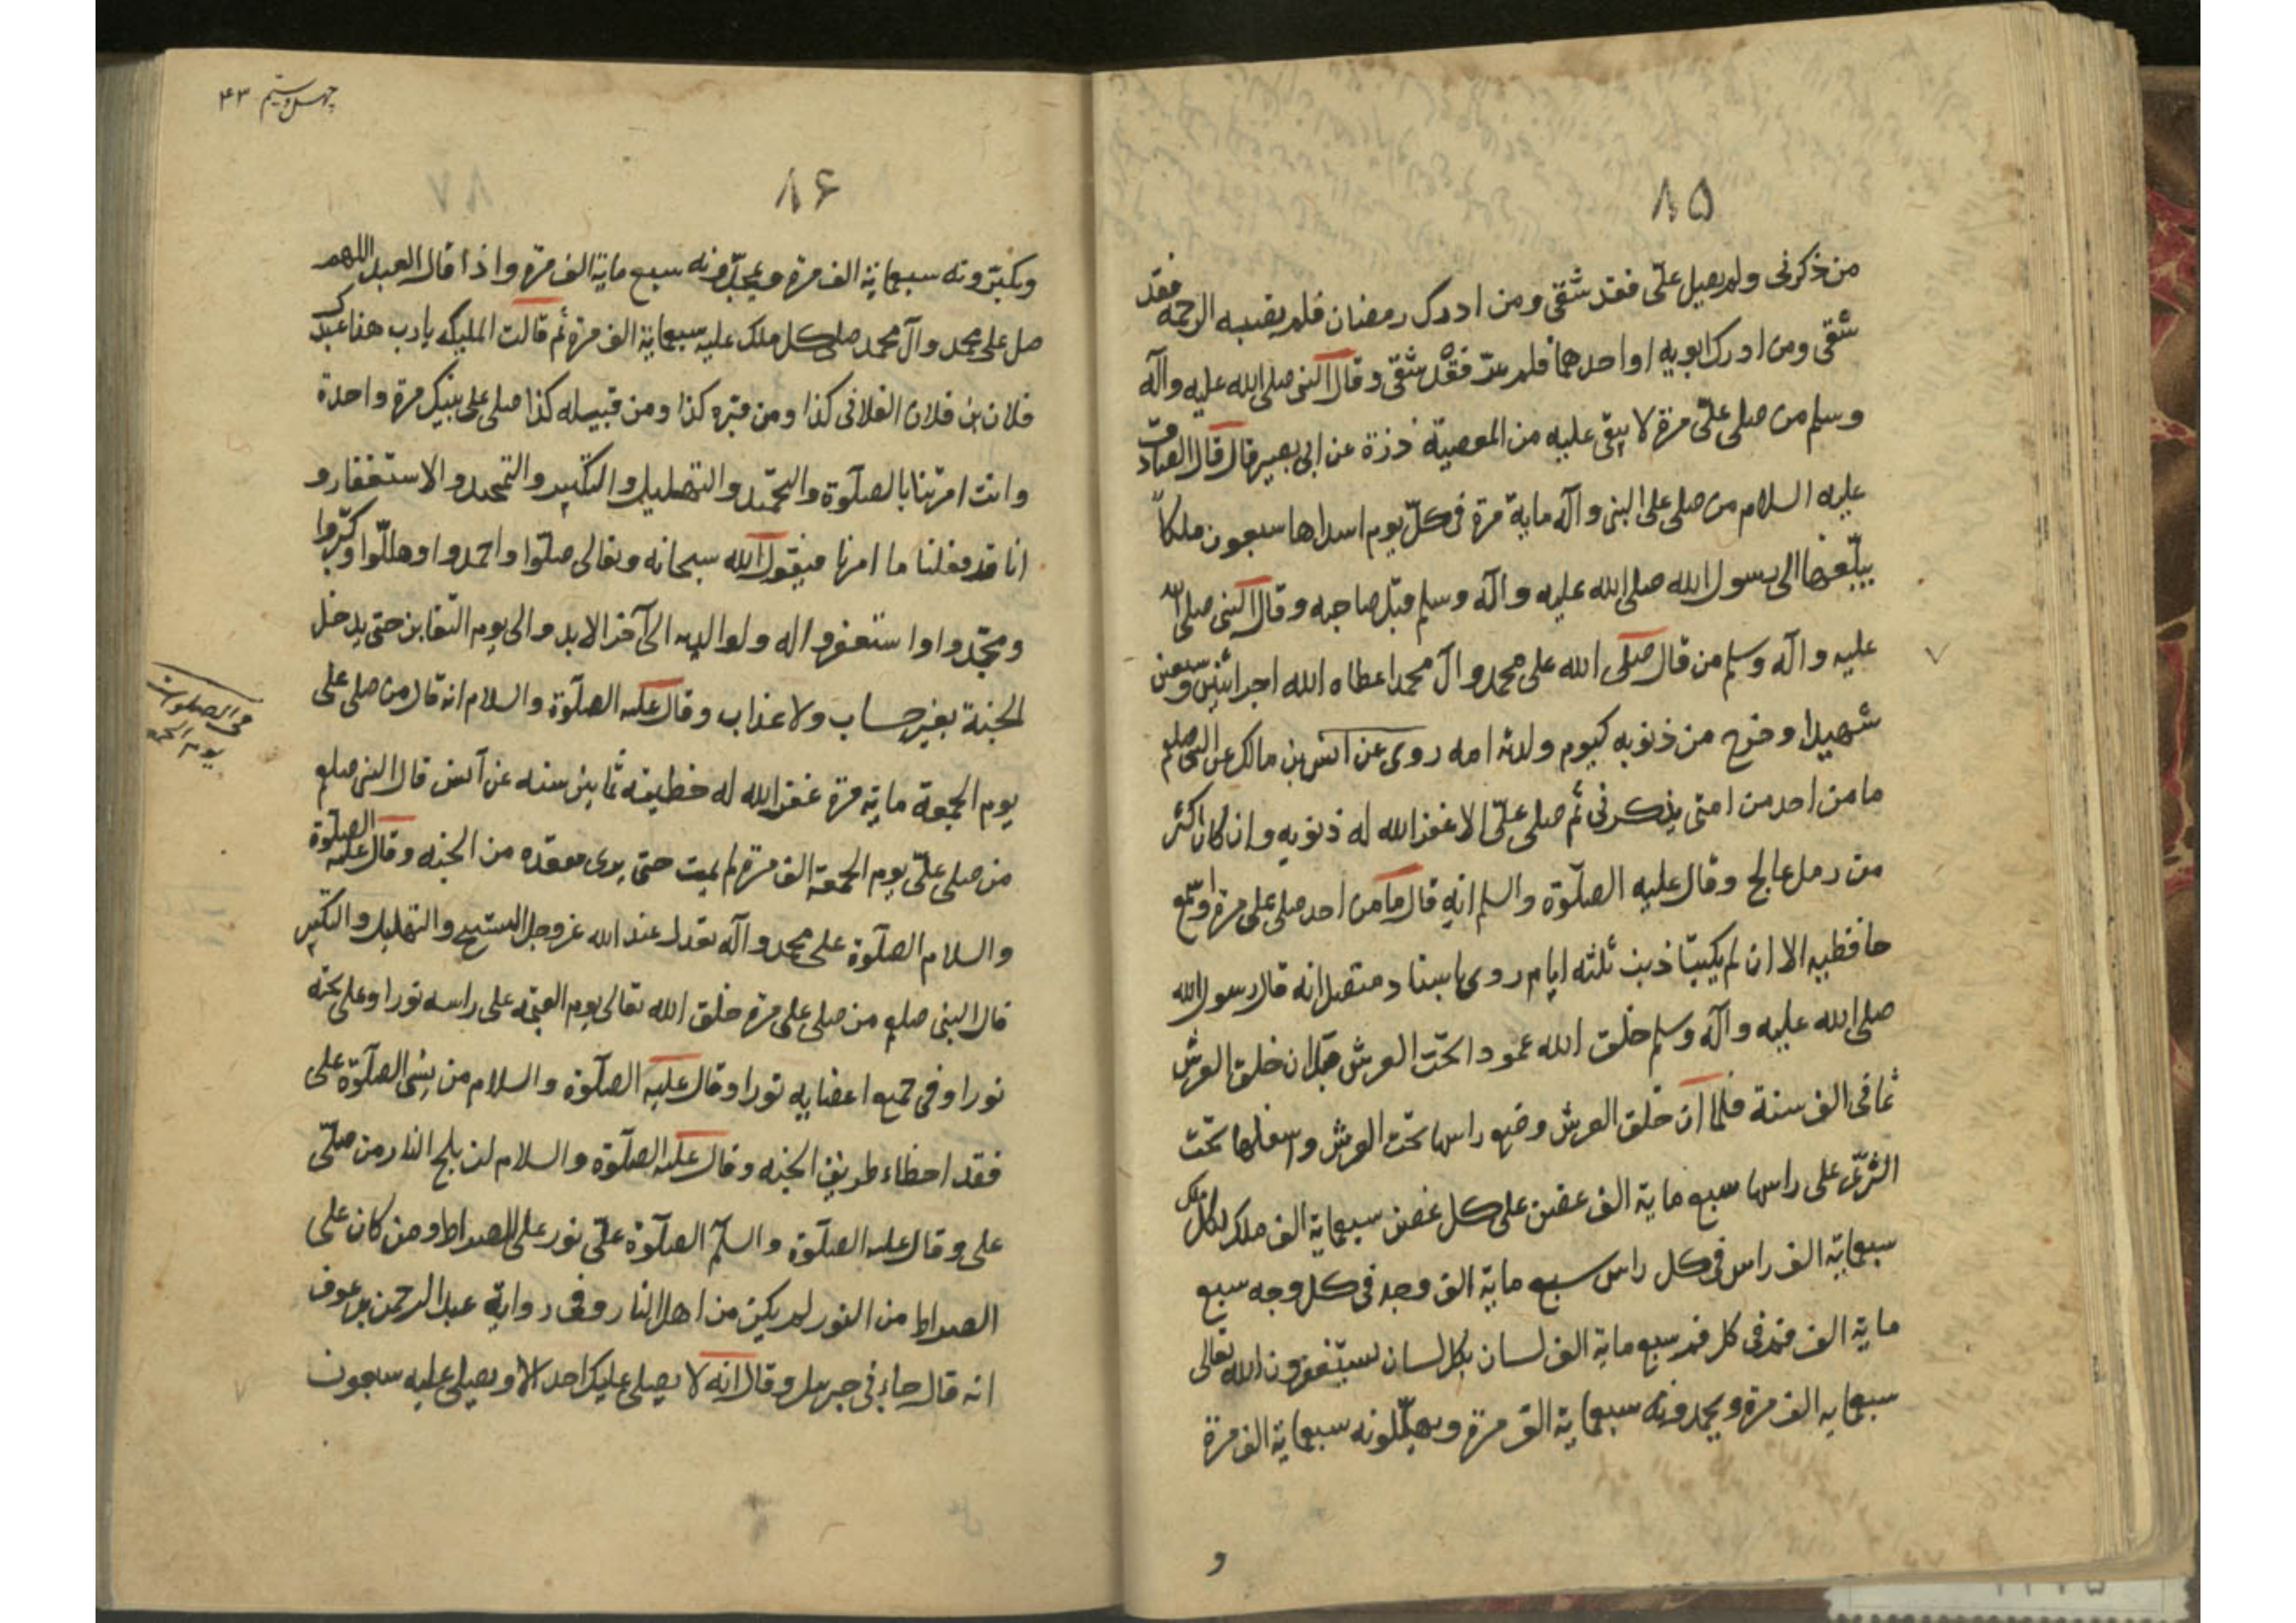 ۸۵
من ذكرنى ولم يصل علىّ فقد شقى ومن ادرك رمضان فلم يصبه الرحمه فقد
شقى ومن ادرك ابويه او احدهما فلم فقد شقى وقال النبى صلى الله عليه وآله
وسلم من صلى علىّ مرة لا يبقى عليه من المعصية ذرة عن ابى بصير قال قال الصادق
عليه السلام من صلى على النبى وآله ماية مرة فى كلّ يوم اسداها سبعون ملكاً
يبلّغها الى رسول الله صلى الله عليه وآله وسلم قبل صاحبه وقال النبى صلى الله
عليه وآله وسلم من قال صلى الله على محمد وآل محمد اعطاه الله اجر اثنين وسبعين
شهيدا وخرج من ذنوبه كيوم ولدته امه روى عن انس بن مالك عن النبى صلعم
ما من احد من امتى يذكرنى ثم صلى علىّ الا غفر الله له ذنوبه وان كان اكثر
من رمل عالج وقال عليه الصلوة والسلم انه قال ما من احد صلى على مرة
حافظيه الا ان لم يكتبا ذنب ثلثه ايام روى باسناد متصل انه قال رسول الله
صلى الله عليه وآله وسلم خلق الله عمودا تحت العرش قبل ان خلق العرش
ثمانى الف سنة فلما ان خلق العرش وضع راسها تحت العرش واسفلها تحت
الثرى على راسها سبع ماية الف غصن على كل غصن سبعماية الف ملك لكل ملك
سبعماية الف راس فى كل راس سبع ماية الف وجه فى كل وجه سبع
ماية الف فم فى كل فم سبع ماية الف لسان بكل لسان يستغفرون الله تعالى
سبعمايه الف مرة ويحمدونه سبعماية الف مرة ويهلّلونه سبعماية الف مرة
و
چهل و سيم ۴۳
۸۶
۸۷
ويكبّرونه سبعماية الف مرة ويمجّدونه سبع ماية الف مرة واذا قال العبد اللهم
صل على محمد وآل محمد صلى كل ملك عليه سبعماية الف مرة ثم قالت المليكه يا رب هذا عبدك
فلان بن فلان الفلانى كذا ومن قبره كذا ومن قبيله كذا صلى على نبيك مرة واحدة
وانت امرتنا بالصلوة والتحميد والتهليل والتكبير والتمجيد والاستغفار و
انا قد فعلنا ما امرنا فيقول الله سبحانه وتعالى صلّوا واحمدوا وهلّلوا وكبّروا
ومجّدوا واستغفروا له ولوالديه الى آخر الابد والى يوم التغابن حتى يدخل
الجنة بغير حساب ولا عذاب وقال عليه الصلوة والسلام انه قال من صلى على
فى الصلوات
يوم الجمعه
يوم الجمعة ماية مرة غفر الله له خطيئه ثمانين سنه عن انس قال النبى صلعم
من صلى علىّ يوم الجمعة الف مرة لم يمت حتى يرى مقعده من الجنه وقال عليه الصلوة
والسلام الصلوة على محمد وآله تعدل عند الله عز وجل التسبيح والتهليل والتكبير
قال النبى صلعم من صلى على مرة خلق الله تعالى يوم القيمه على راسه نورا وعلى
نورا وفى جميع اعضايه نورا وقال عليه الصلوة والسلام من نسى الصلوة على
فقد اخطاء طريق الجنه وقال عليه الصلوة والسلام لن يلج النار من صلّى
على وقال عليه الصلوة والسلم الصلوة علىّ نور على الصراط ومن كان على
الصراط من النور لم يكن من اهل النار وفى رواية عبد الرحمن بن عوف
انه قال جاءنى جبرئيل وقال انه لا يصلى عليك احد الا ويصلى عليه سبعون